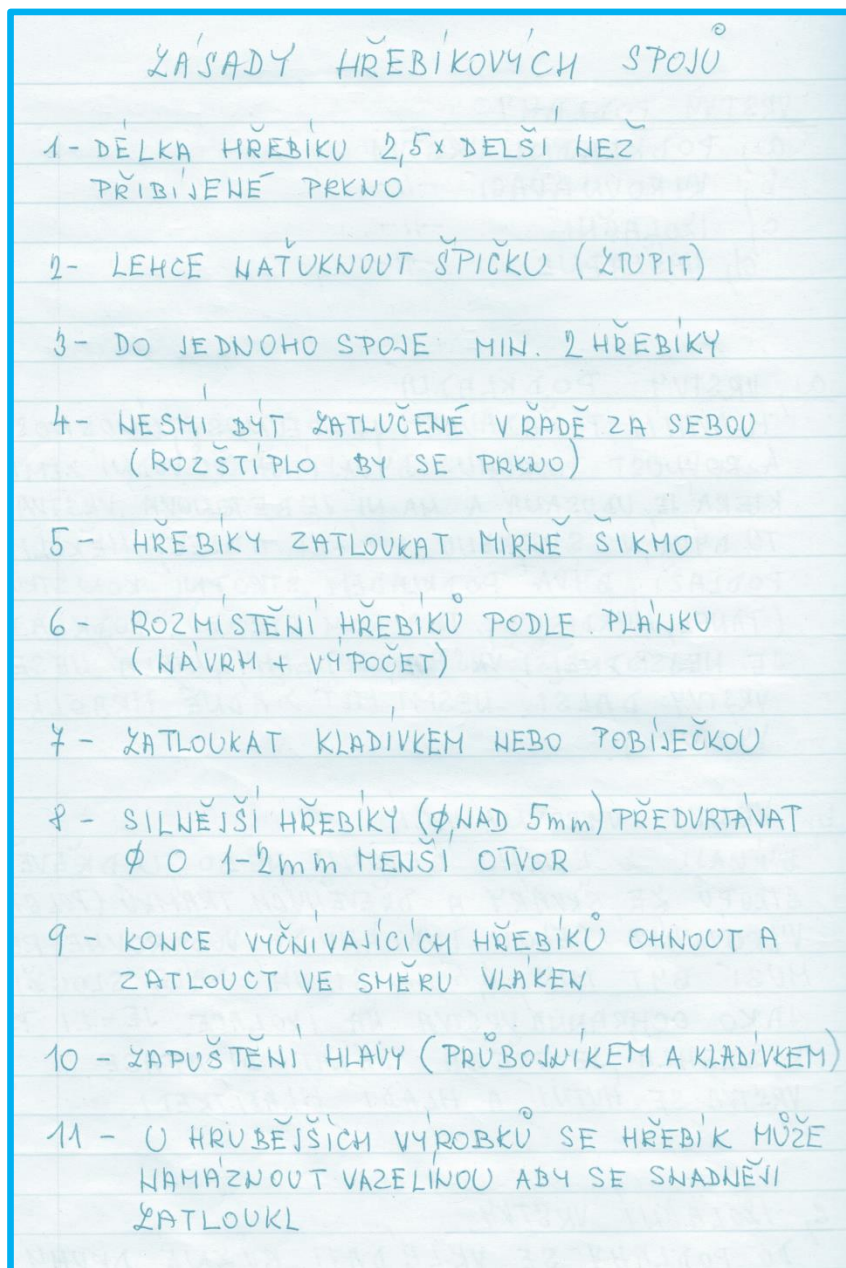 ZÁSADY HŘEBÍKOVÝCH SPOJŮ
1 - DÉLKA HŘEBÍKU 2,5x DELŠÍ NEŽ
PŘIBÍJENÉ PRKNO
2 - LEHCE NAŤUKNOUT ŠPIČKU (ZTUPIT)
3 - DO JEDNOHO SPOJE MIN. 2 HŘEBÍKY
4 - NESMÍ BÝT ZATLUČENÉ V ŘADĚ ZA SEBOU
(ROZŠTÍPLO BY SE PRKNO)
5 - HŘEBÍKY ZATLOUKAT MÍRNĚ ŠIKMO
6 - ROZMÍSTĚNÍ HŘEBÍKŮ PODLE PLÁNKU
(NÁVRH, VÝPOČET)
7 - ZATLOUKAT KLADÍVKEM NEBO POBÍJEČKOU
8 - SILNĚJŠÍ HŘEBÍKY (Ø NAD 5mm) PŘEDVRTÁVAT
Ø O 1-2mm MENŠÍ OTVOR
9 - KONCE VYČNÍVAJÍCÍCH HŘEBÍKŮ OHNOUT A
ZATLOUCT VE SMĚRU VLÁKEN
10 - ZAPUŠTĚNÍ HLAVY (PRŮBOJNÍKEM A KLADÍVKEM)
11 - U HRUBĚJŠÍCH VÝROBKŮ SE HŘEBÍK MŮŽE
NAMÁZNOUT VAZELÍNOU ABY SE SNADNĚJI
ZATLOUKL